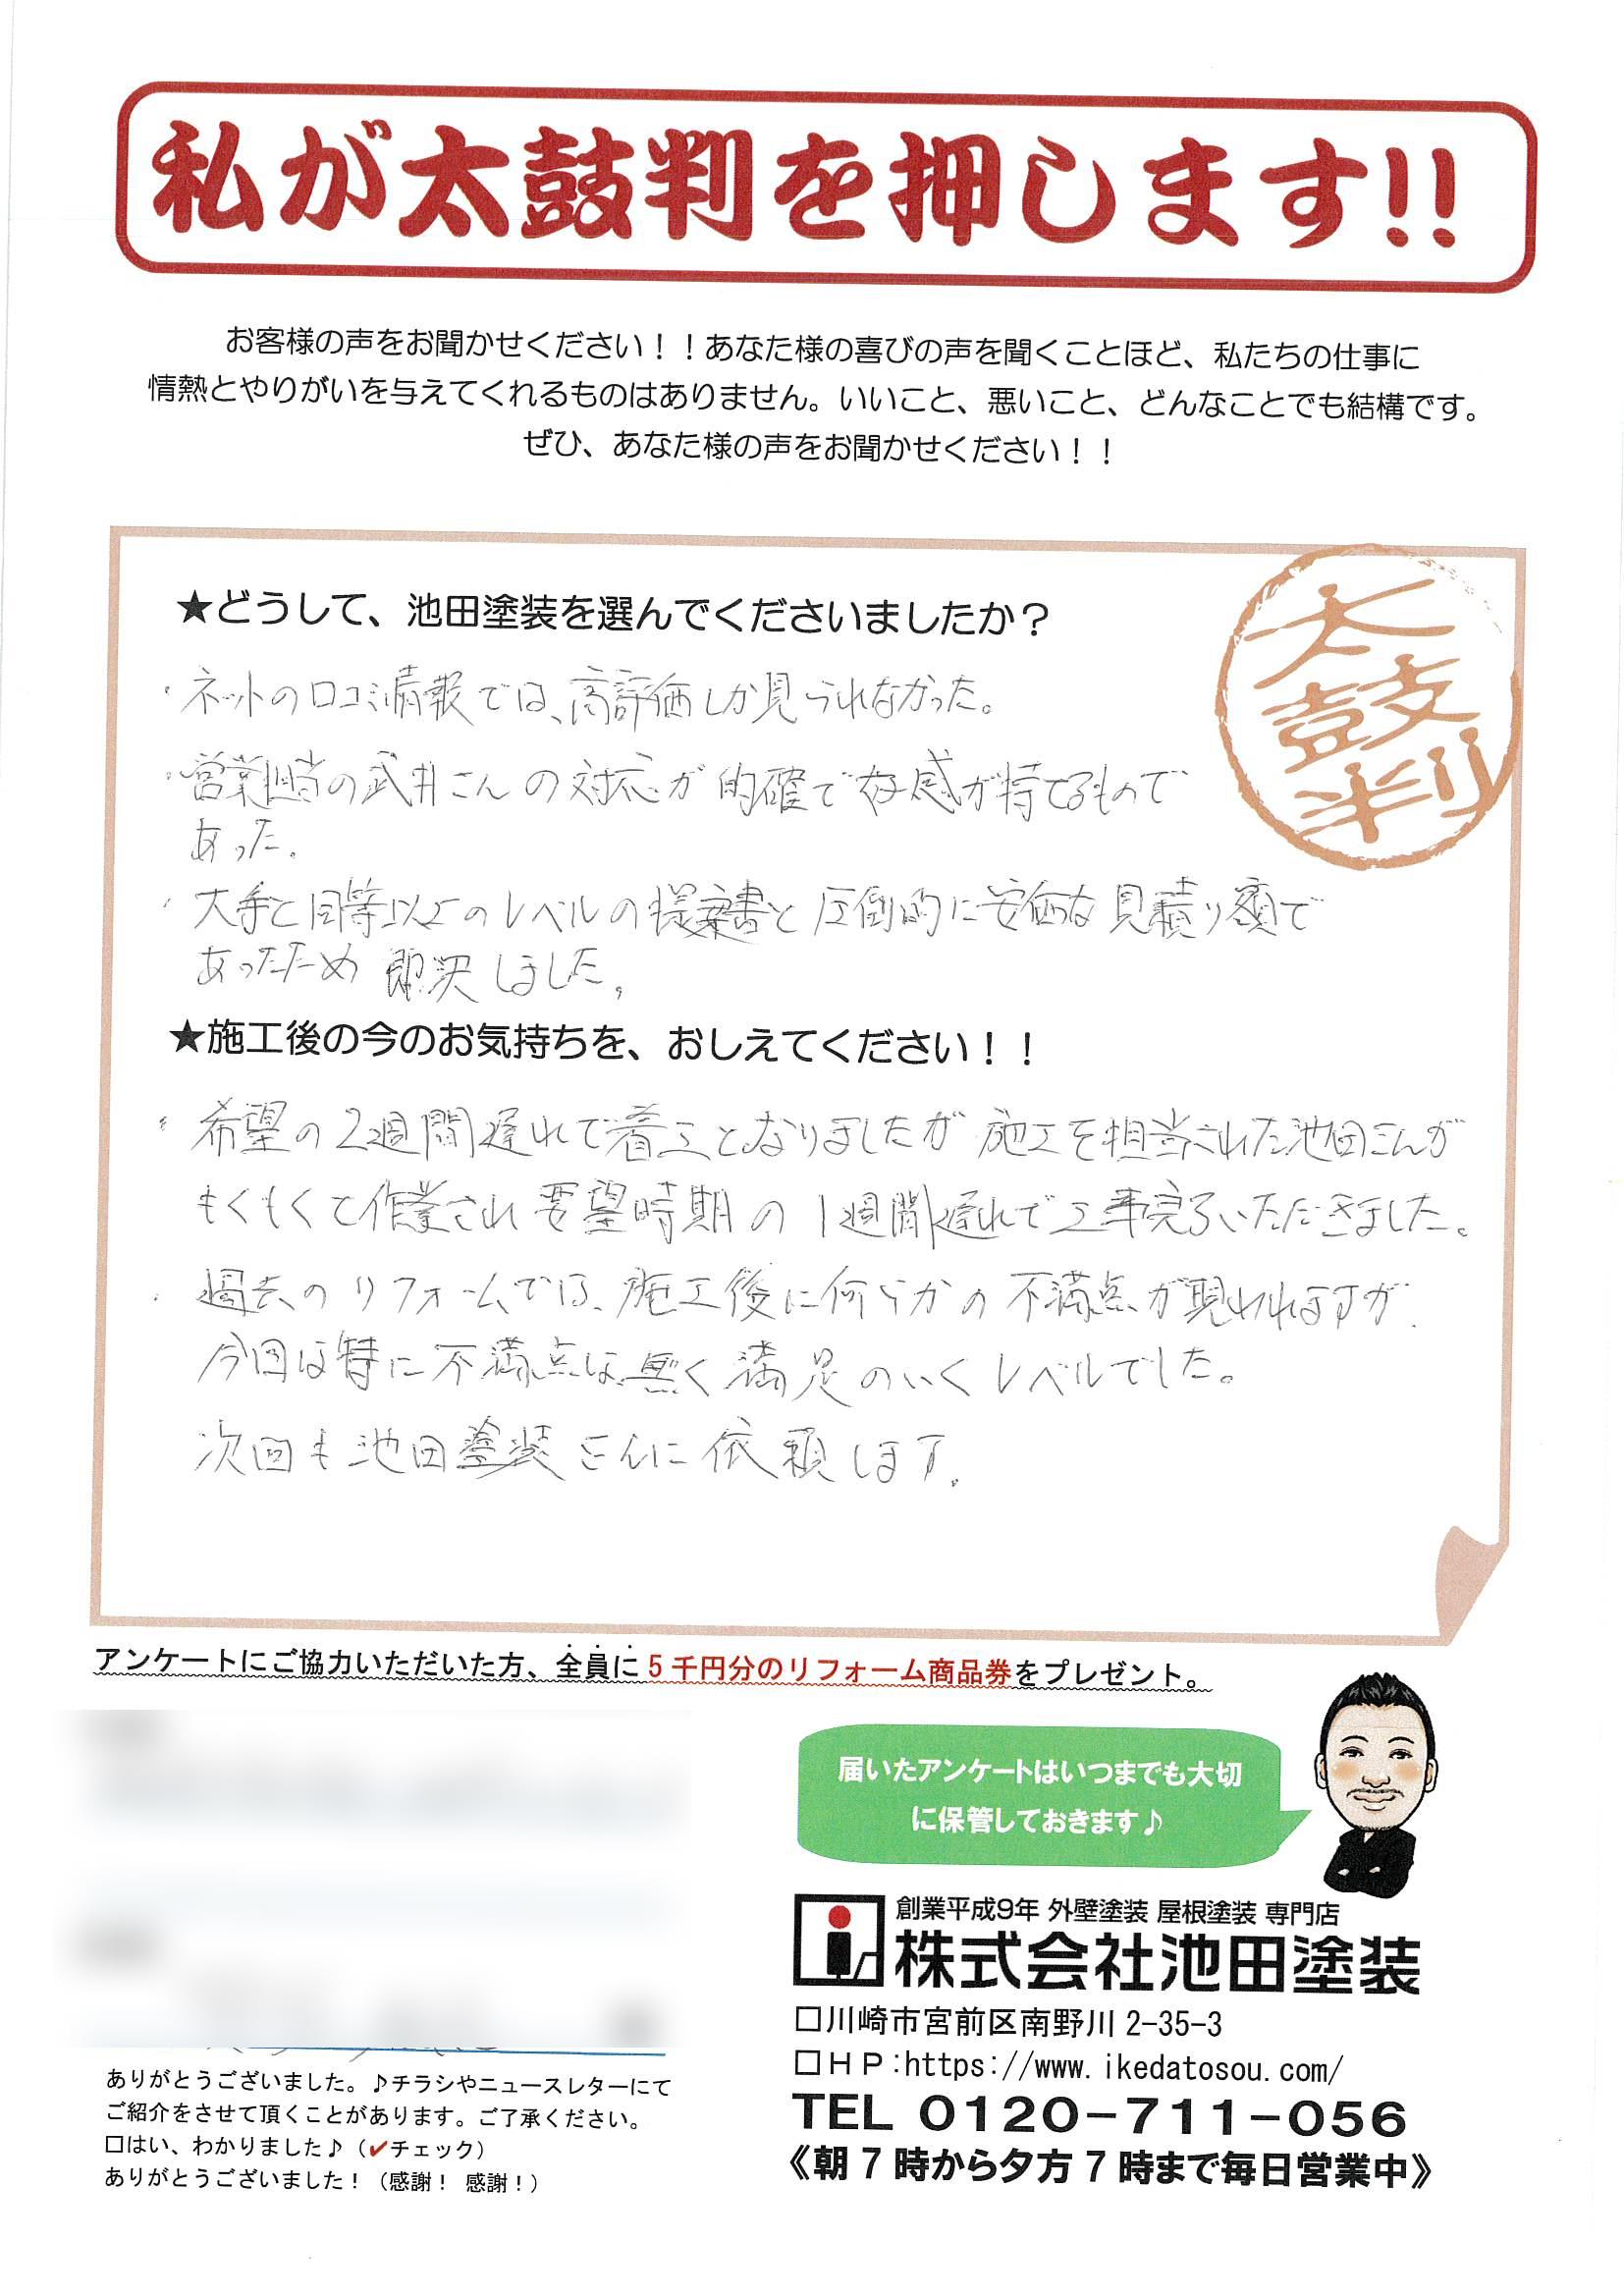 私が太鼓判を押します!!
お客様の声をお聞かせください！！あなた様の喜びの声を聞くことほど、私たちの仕事に
情熱とやりがいを与えてくれるものはありません。いいこと、悪いこと、どんなことでも結構です。
ぜひ、あなた様の声をお聞かせください！！
太鼓判
★どうして、池田塗装を選んでくださいましたか？
・ネットの口コミ情報では、高評価しか見られなかった。
・営業担当の武井さんの対応が的確で好感が持てるもので
あった。
・大手と同等以上のレベルの提案書と圧倒的に安価な見積り額で
あったため即決しました。
★施工後の今のお気持ちを、おしえてください！！
・希望の2週間遅れで着工となりましたが施工を担当された池田さんが
もくもくと作業され要望時期の1週間遅れで工事完了いただきました。
・過去のリフォームでは、施工後に何らかの不満点が現われますが、
今回は特に不満点は無く満足のいくレベルでした。
次回も池田塗装さんに依頼します。
アンケートにご協力いただいた方、全員に5千円分のリフォーム商品券をプレゼント。
届いたアンケートはいつまでも大切
に保管しておきます♪
創業平成9年 外壁塗装 屋根塗装 専門店
株式会社池田塗装
□川崎市宮前区南野川2-35-3
□ＨＰ:https://www.ikedatosou.com/
TEL 0120-711-056
《朝7時から夕方7時まで毎日営業中》
ありがとうございました。♪チラシやニュースレターにて
ご紹介をさせて頂くことがあります。ご了承ください。
□はい、わかりました♪（✔チェック）
ありがとうございました！（感謝！ 感謝！）